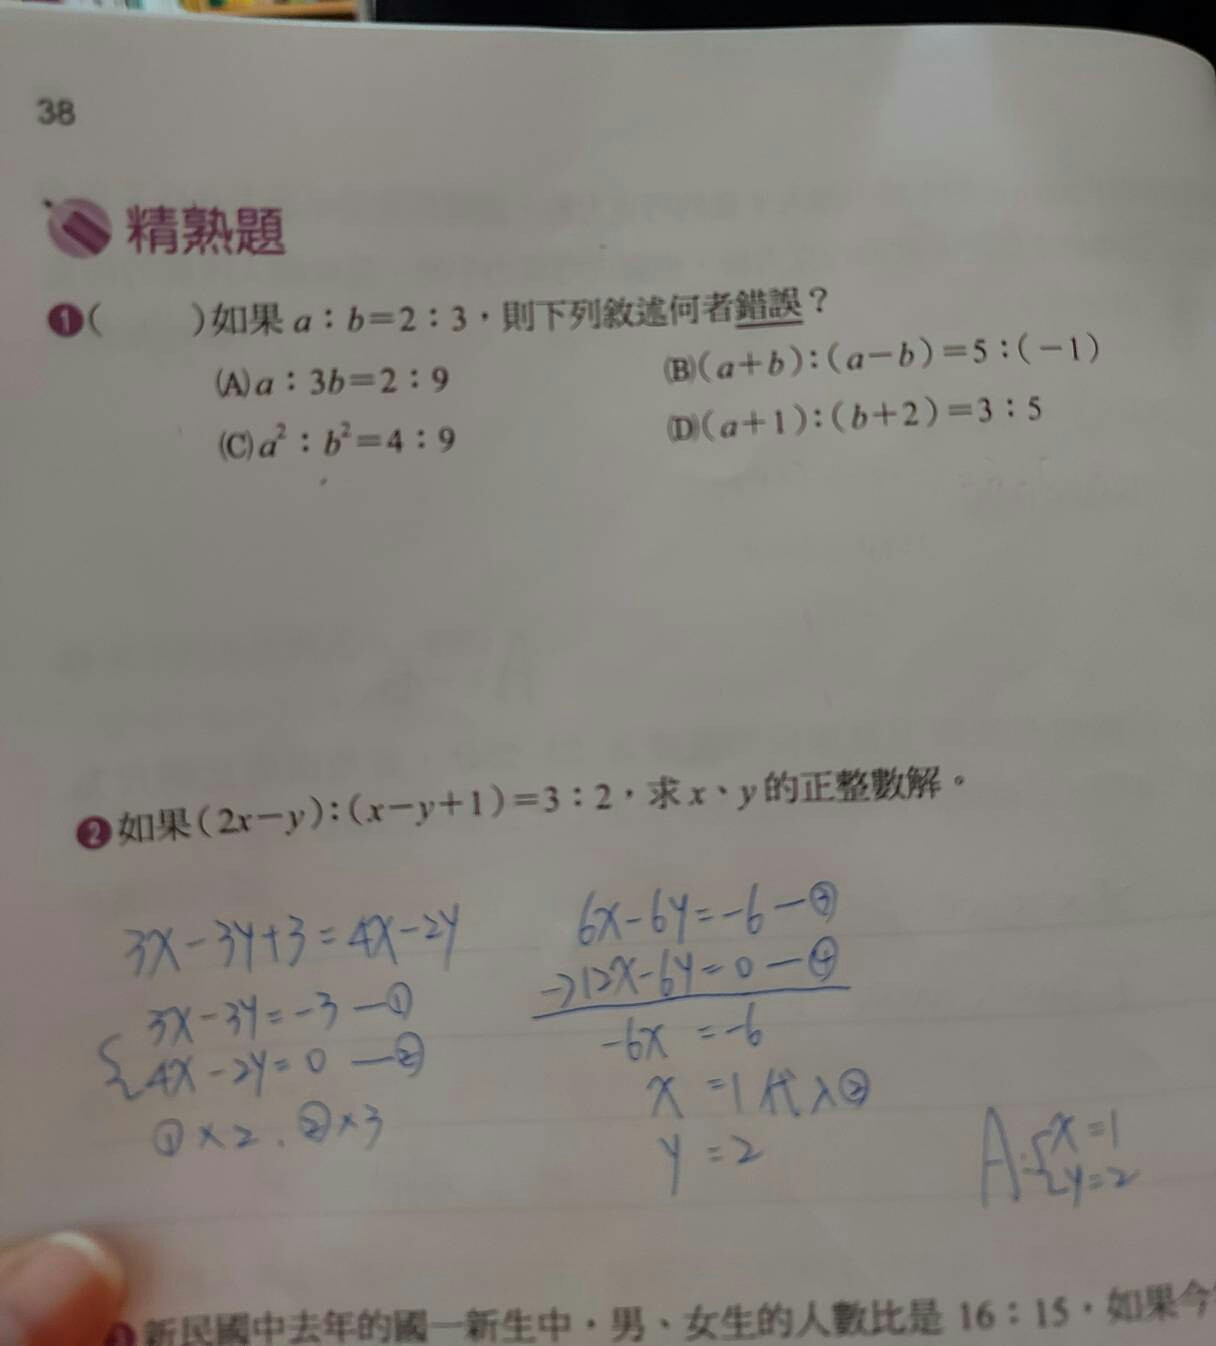 38
精熟題
❶(　　)如果 a：b=2：3，則下列敘述何者錯誤？
(A)a：3b=2：9　(B)(a+b)：(a−b)=5：(−1)
(C)a²：b²=4：9　(D)(a+1)：(b+2)=3：5
❷如果(2x−y)：(x−y+1)=3：2，求x、y的正整數解。
3x−3y+3=4x−2y
3x−3y=−3—①
4x−2y=0—②
①×2、②×3
6x−6y=−6—③
−)12x−6y=0—④
−6x=−6
x=1代入②
y=2
A:{x=1
y=2
新民國中去年的國一新生中，男、女生的人數比是 16：15，如果今